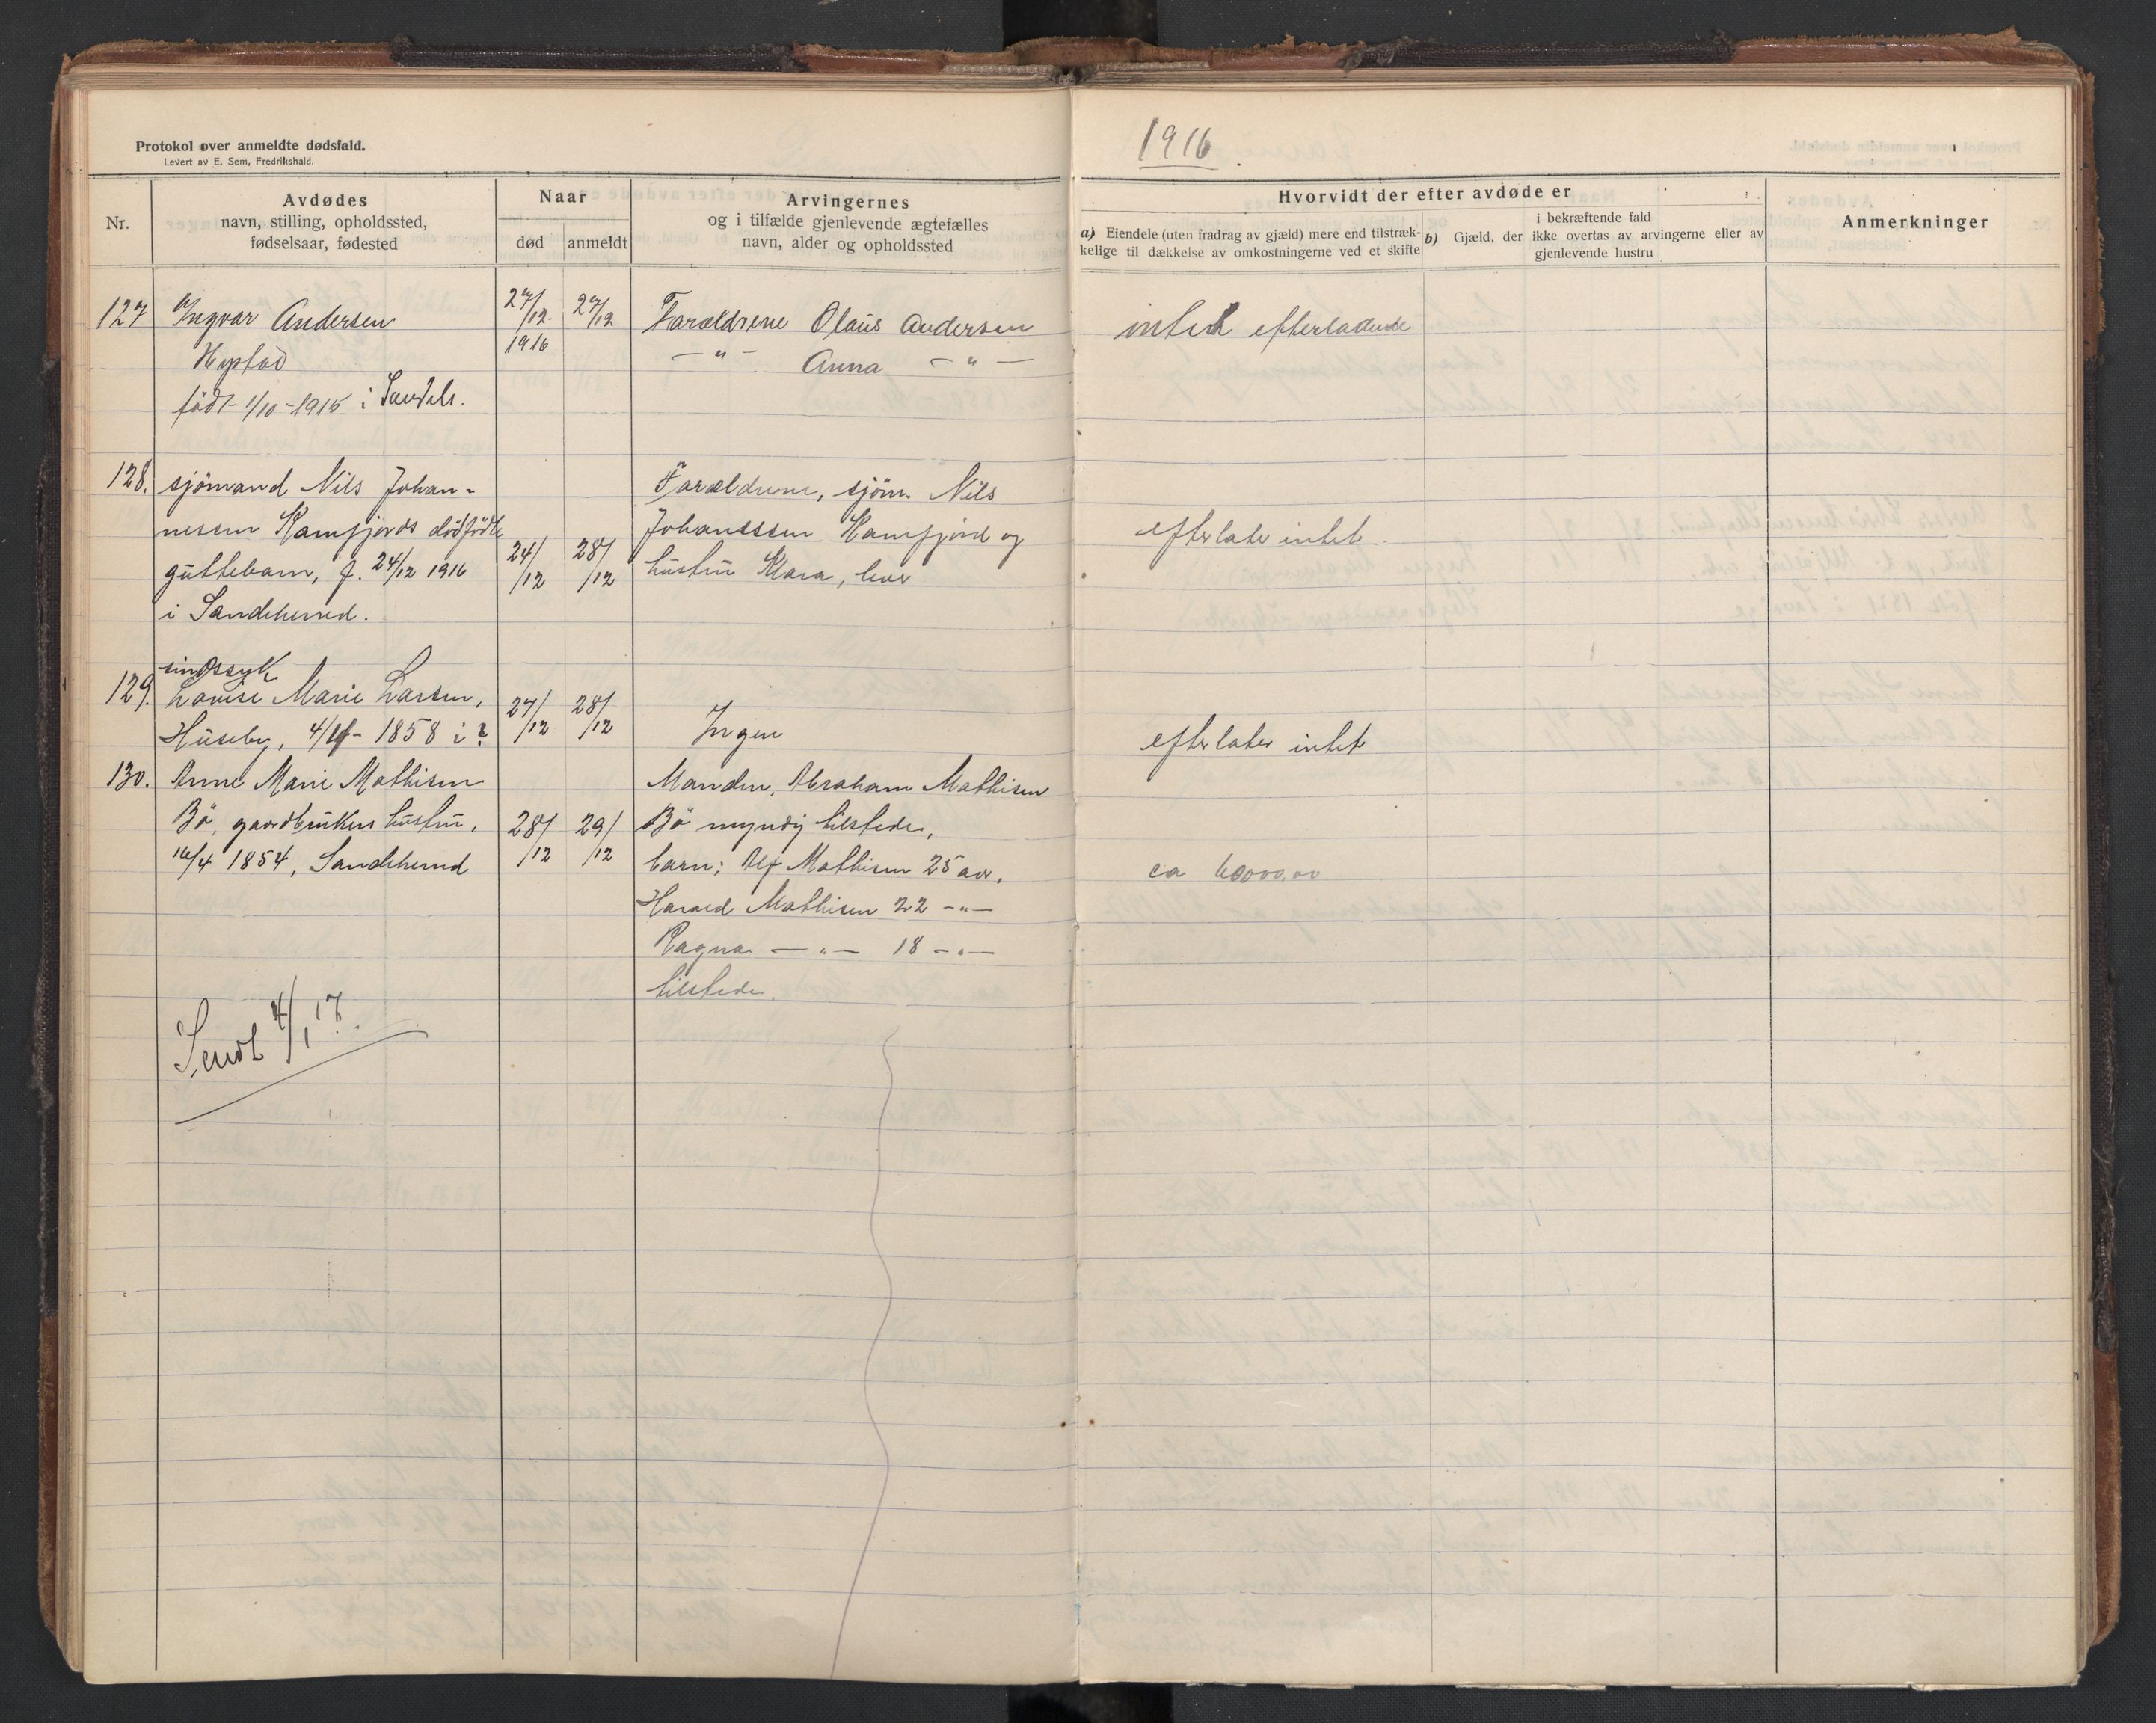 Protokol over anmeldte dødsfald.
Levert av E. Sem, Fredrikshald.
1916
Nr.
Avdødes
navn, stilling, opholdssted,
fødselsaar, fødested
Naar
død
anmeldt
Arvingernes
og i tilfælde gjenlevende ægtefælles
navn, alder og opholdssted
Hvorvidt der efter avdøde er
a) Eiendele (uten fradrag av gjæld) mere end tilstræk-
kelige til dækkelse av omkostningerne ved et skifte
i bekræftende fald
b) Gjæld, der ikke overtas av arvingerne eller av
gjenlevende hustru
Anmerkninger
127 Ingvar Andersen
Hystad
født 1/10-1915 i Sandeh.
27/12 1916
27/12
Forældrene Olaus Andersen
—"— Anna —"—
intet efterladende
128. sjömand Nils Johan-
nessen Kamfjords dödfödte
guttebarn, f. 24/12 1916
i Sandeherred.
24/12
28/12
Forældrene, sjöm. Nils
Johanssen Kamfjord og
hustru Klara, bor
efterlater intet.
sindssyk
129. Lovise Marie Larsen,
Huseby, 4/11- 1858 i ?
27/12
28/12
Ingen
efterlater intet
130. Anne Marie Mathisen
Bö, gaardbrukers hustru,
16/4 1854, Sandeherred
28/12
29/12
Manden, Abraham Mathisen
Bö myndig tilstede,
barn; Alf Mathisen 25 aar,
Harald Mathisen 22 —"—
Ragna —"— 18 —"—
tilstede.
ca 60000,00
Sendt 4/1 17.